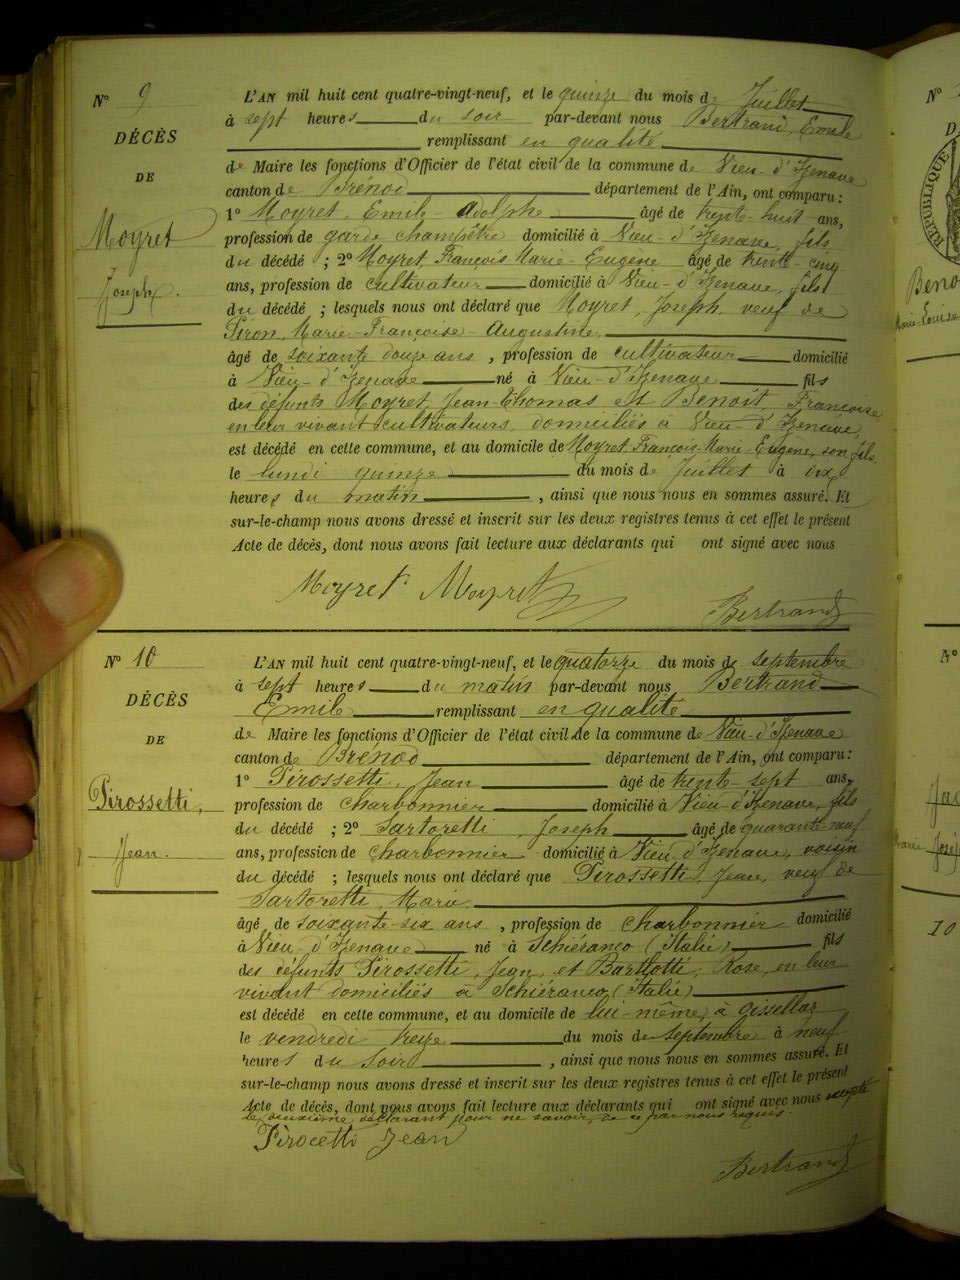 N° 9
DÉCÈS
DE
Moyret
Joseph.
L'AN mil huit cent quatre-vingt-neuf, et le quinze du mois de Juillet
à sept heures du soir par-devant nous Bertrand, Emile
remplissant en qualité
de Maire les fonctions d'Officier de l'état civil de la commune de Vieu-d'Izenave
canton de Brénod département de l'Ain, ont comparu :
1° Moyret, Emile-Adolphe âgé de trente-huit ans,
profession de garde champêtre domicilié à Vieu-d'Izenave, fils
du décédé ; 2° Moyret, François Marie-Eugène âgé de trente-cinq
ans, profession de cultivateur domicilié à Vieu-d'Izenave, fils
du décédé ; lesquels nous ont déclaré que Moyret, Joseph veuf de
Piron, Marie-Françoise-Augustine,
âgé de soixante douze ans , profession de cultivateur domicilié
à Vieu-d'Izenave né à Vieu-d'Izenave fils
des défunts Moyret, Jean-Thomas et Benoit, Françoise
en leur vivant cultivateurs, domiciliés à Vieu-d'Izenave
est décédé en cette commune, et au domicile de Moyret François-Marie-Eugène, son fils,
le lundi quinze du mois de Juillet à dix
heures du matin , ainsi que nous nous en sommes assuré. Et
sur-le-champ nous avons dressé et inscrit sur les deux registres tenus à cet effet le présent
Acte de décès, dont nous avons fait lecture aux déclarants qui ont signé avec nous
Moyret Moyret
Bertrand
N° 10
DÉCÈS
DE
Pirossetti,
Jean.
L'AN mil huit cent quatre-vingt-neuf, et le quatorze du mois de septembre
à sept heures du matin par-devant nous Bertrand
Emile remplissant en qualité
de Maire les fonctions d'Officier de l'état civil de la commune de Vieu-d'Izenave
canton de Brénod département de l'Ain, ont comparu :
1° Pirossetti, Jean âgé de trente-sept ans,
profession de charbonnier domicilié à Vieu-d'Izenave, fils
du décédé ; 2° Sartoretti, Joseph âgé de quarante-neuf
ans, profession de charbonnier domicilié à Vieu-d'Izenave, voisin
du décédé ; lesquels nous ont déclaré que Pirossetti, Jean, veuf de
Sartoretti, Marie
âgé de soixante-six ans , profession de charbonnier domicilié
à Vieu-d'Izenave né à Schiéranco (Italie) fils
des défunts Pirossetti, Jean, et Bartlotti, Rose, en leur
vivant domiciliés à Schiéranco (Italie)
est décédé en cette commune, et au domicile de lui-même, à Gisellar
le vendredi treize du mois de septembre à neuf
heures du soir , ainsi que nous nous en sommes assuré. Et
sur-le-champ nous avons dressé et inscrit sur les deux registres tenus à cet effet le présent
Acte de décès, dont nous avons fait lecture aux déclarants qui ont signé avec nous excepté
le deuxième déclarant pour ne savoir, de ce par nous requis.
Pirocetti Jean
Bertrand
N°
RÉPUBLIQUE
Beno
Marie-Louise
N°
10